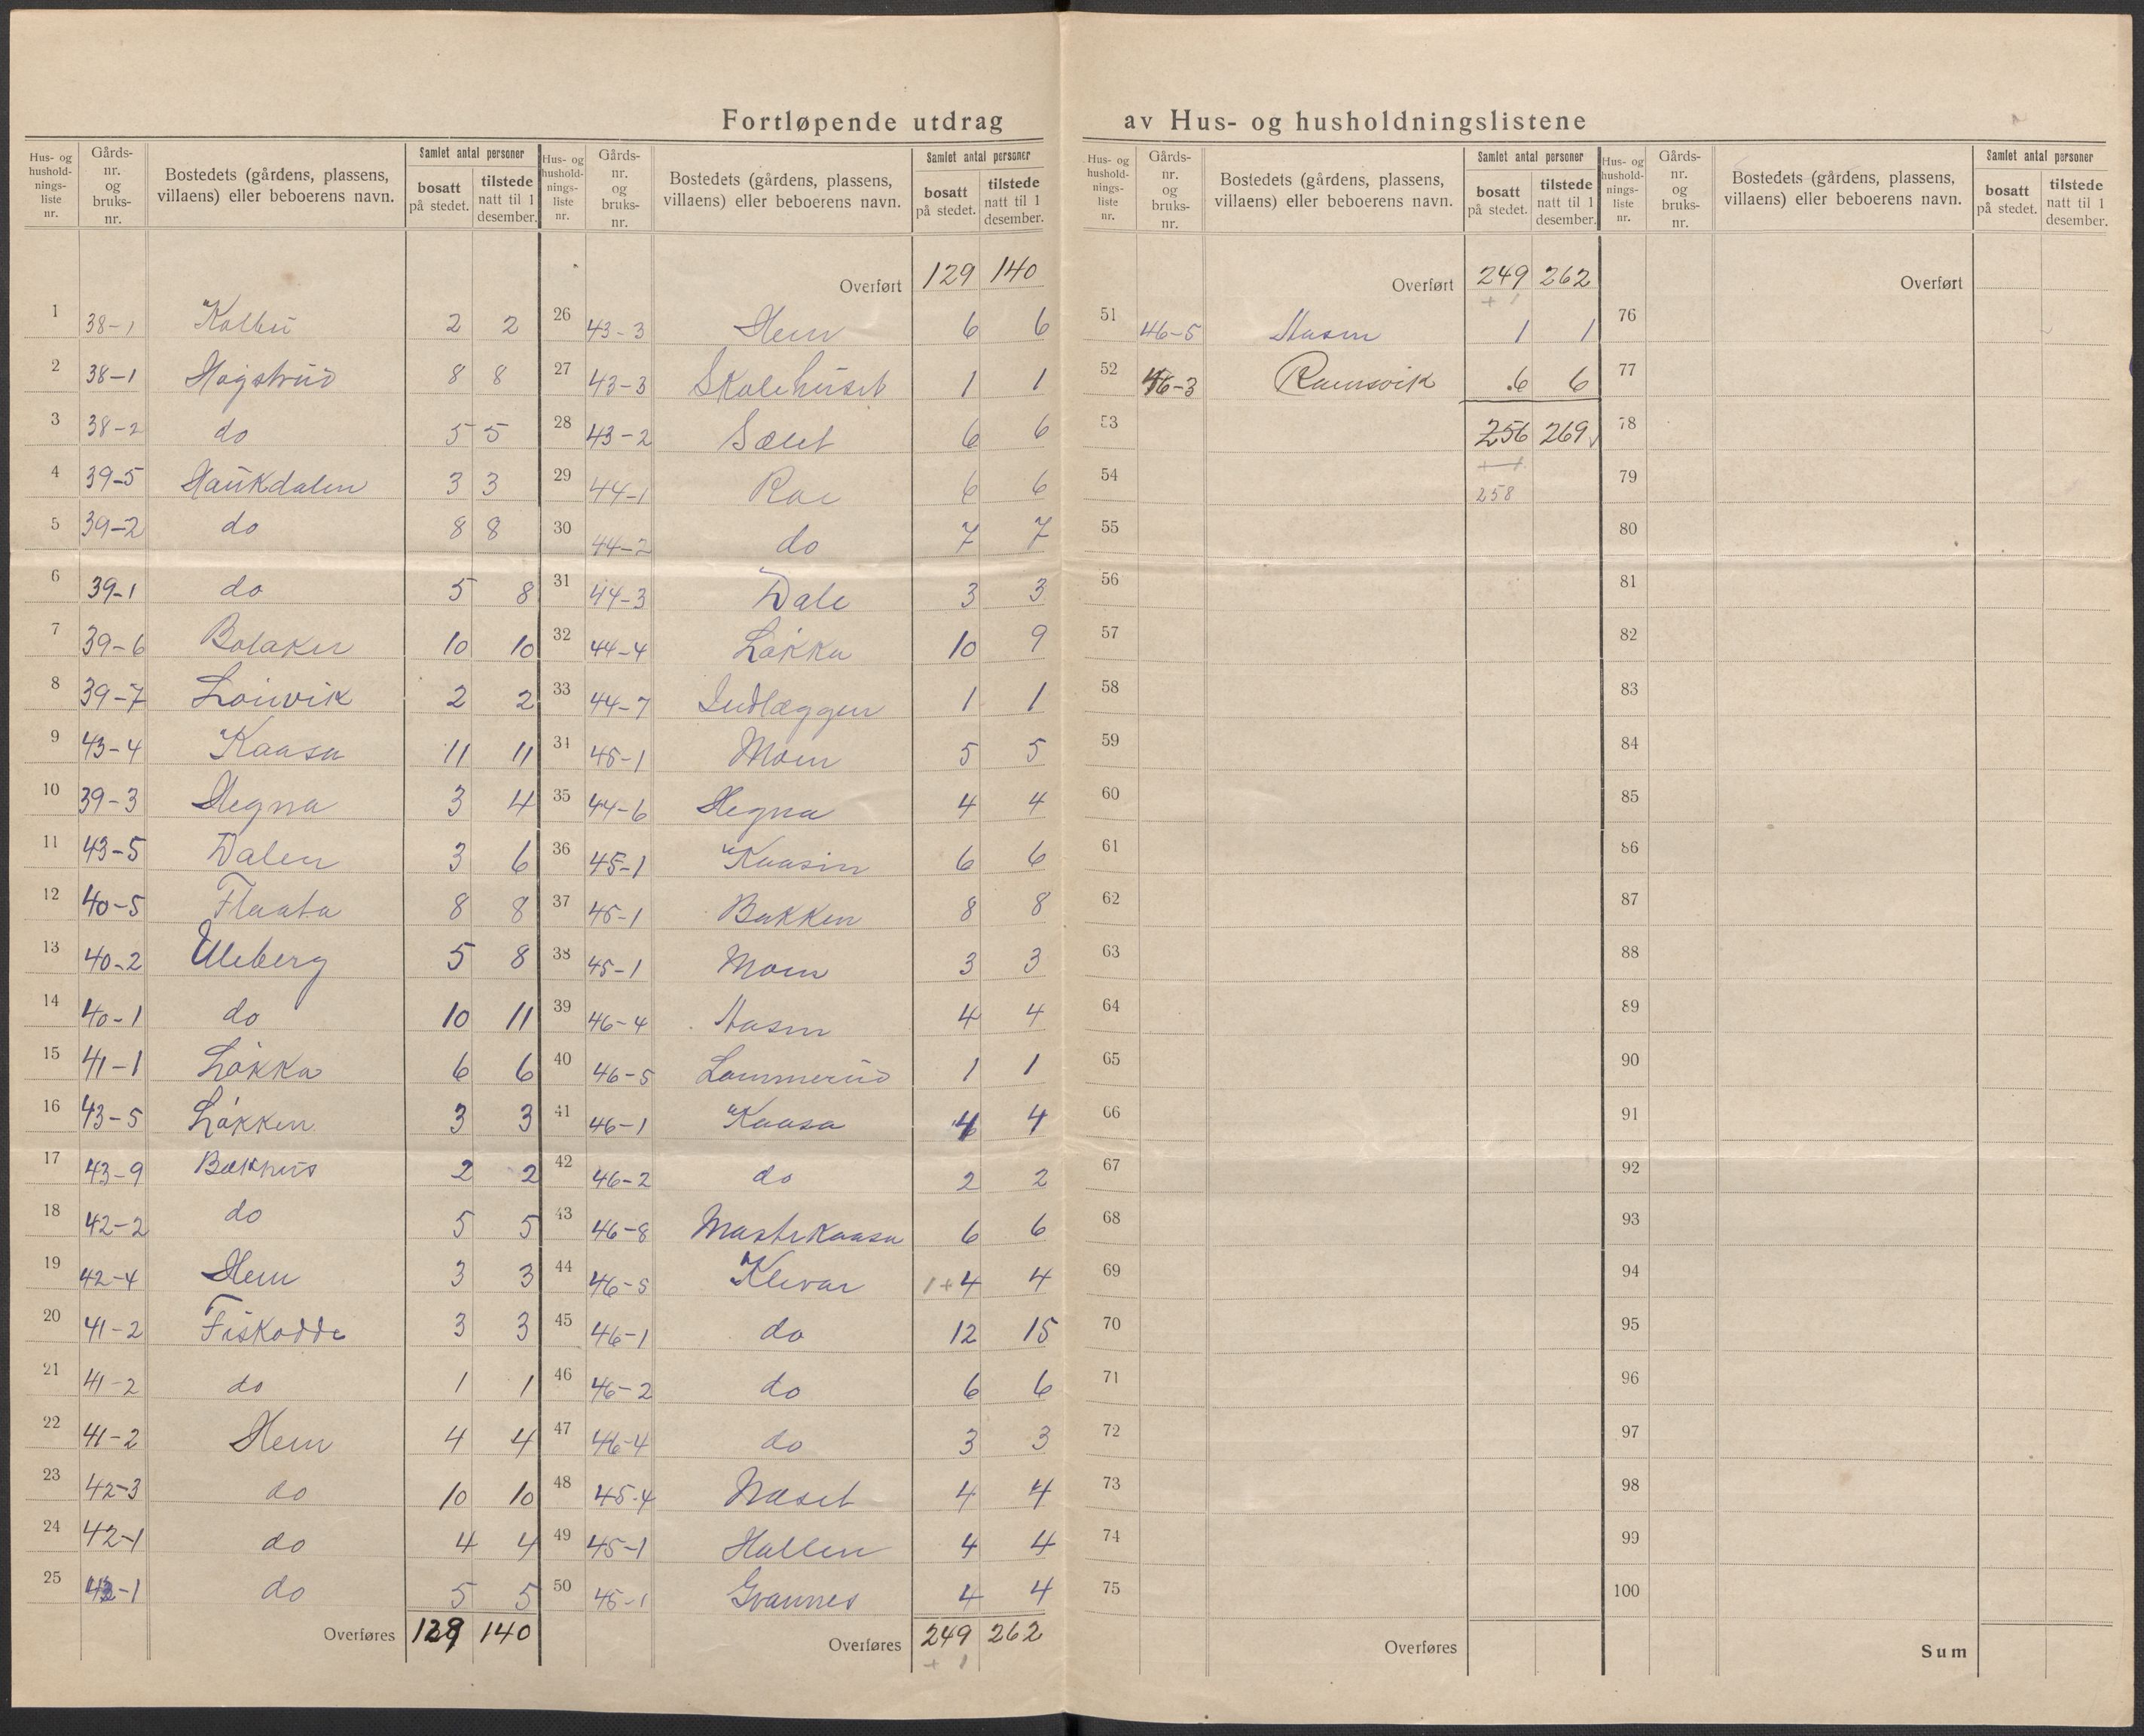 Fortløpende utdrag av Hus- og husholdningslistene
Hus- og husholdnings-liste nr. Gårds-nr. og bruks-nr. Bostedets (gårdens, plassens, villaens) eller beboerens navn. Samlet antal personer bosatt på stedet. tilstede natt til 1 desember.
1 38-1 Kolbu 2 2
2 38-1 Hogstrud 8 8
3 38-2 do 5 5
4 39-5 Haukdalen 3 3
5 39-2 do 8 8
6 39-1 do 5 8
7 39-6 Bolaker 10 10
8 39-7 Louvik 2 2
9 43-4 Kaasa 11 11
10 39-3 Hegna 3 4
11 43-5 Dalen 3 6
12 40-5 Flaata 8 8
13 40-2 Uleberg 5 8
14 40-1 do 10 11
15 41-1 Løkka 6 6
16 43-5 Løkken 3 3
17 43-9 Bakhus 2 2
18 42-2 do 5 5
19 42-4 Hem 3 3
20 41-2 Fiskodde 3 3
21 41-2 do 1 1
22 41-2 Hem 4 4
23 42-3 do 10 10
24 42-1 do 4 4
25 42-1 do 5 5
Overføres 129 140
Hus- og husholdnings-liste nr. Gårds-nr. og bruks-nr. Bostedets (gårdens, plassens, villaens) eller beboerens navn. Samlet antal personer bosatt på stedet. tilstede natt til 1 desember.
Overført 129 140
26 43-3 Hem 6 6
27 43-3 Skolehuset 1 1
28 43-2 Sælet 6 6
29 44-1 Roe 6 6
30 44-2 do 7 7
31 44-3 Dale 3 3
32 44-4 Løkka 10 9
33 44-7 Indlæggen 1 1
34 45-1 Moen 5 5
35 44-6 Hegna 4 4
36 45-1 Kaasin 6 6
37 45-1 Bakken 8 8
38 45-1 Moen 3 3
39 46-4 Aasen 4 4
40 46-5 Lommerud 1 1
41 46-1 Kaasa 4 4
42 46-2 do 2 2
43 46-8 Mastekaasa 6 6
44 46-5 Klevar 1+4 4
45 46-1 do 12 15
46 46-2 do 6 6
47 46-4 do 3 3
48 45-4 Næset 4 4
49 45-1 Hallen 4 4
50 45-1 Grannes 4 4
Overføres 249 262
+ 1
Hus- og husholdnings-liste nr. Gårds-nr. og bruks-nr. Bostedets (gårdens, plassens, villaens) eller beboerens navn. Samlet antal personer bosatt på stedet. tilstede natt til 1 desember.
Overført 249 262
+ 1
51 46-5 Aasen 1 1
52 46-3 Ramsvik 6 6
53 256 269
+ 1
54 258
55
56
57
58
59
60
61
62
63
64
65
66
67
68
69
70
71
72
73
74
75
Overføres
Hus- og husholdnings-liste nr. Gårds-nr. og bruks-nr. Bostedets (gårdens, plassens, villaens) eller beboerens navn. Samlet antal personer bosatt på stedet. tilstede natt til 1 desember.
Overført
76
77
78
79
80
81
82
83
84
85
86
87
88
89
90
91
92
93
94
95
96
97
98
99
100
Sum